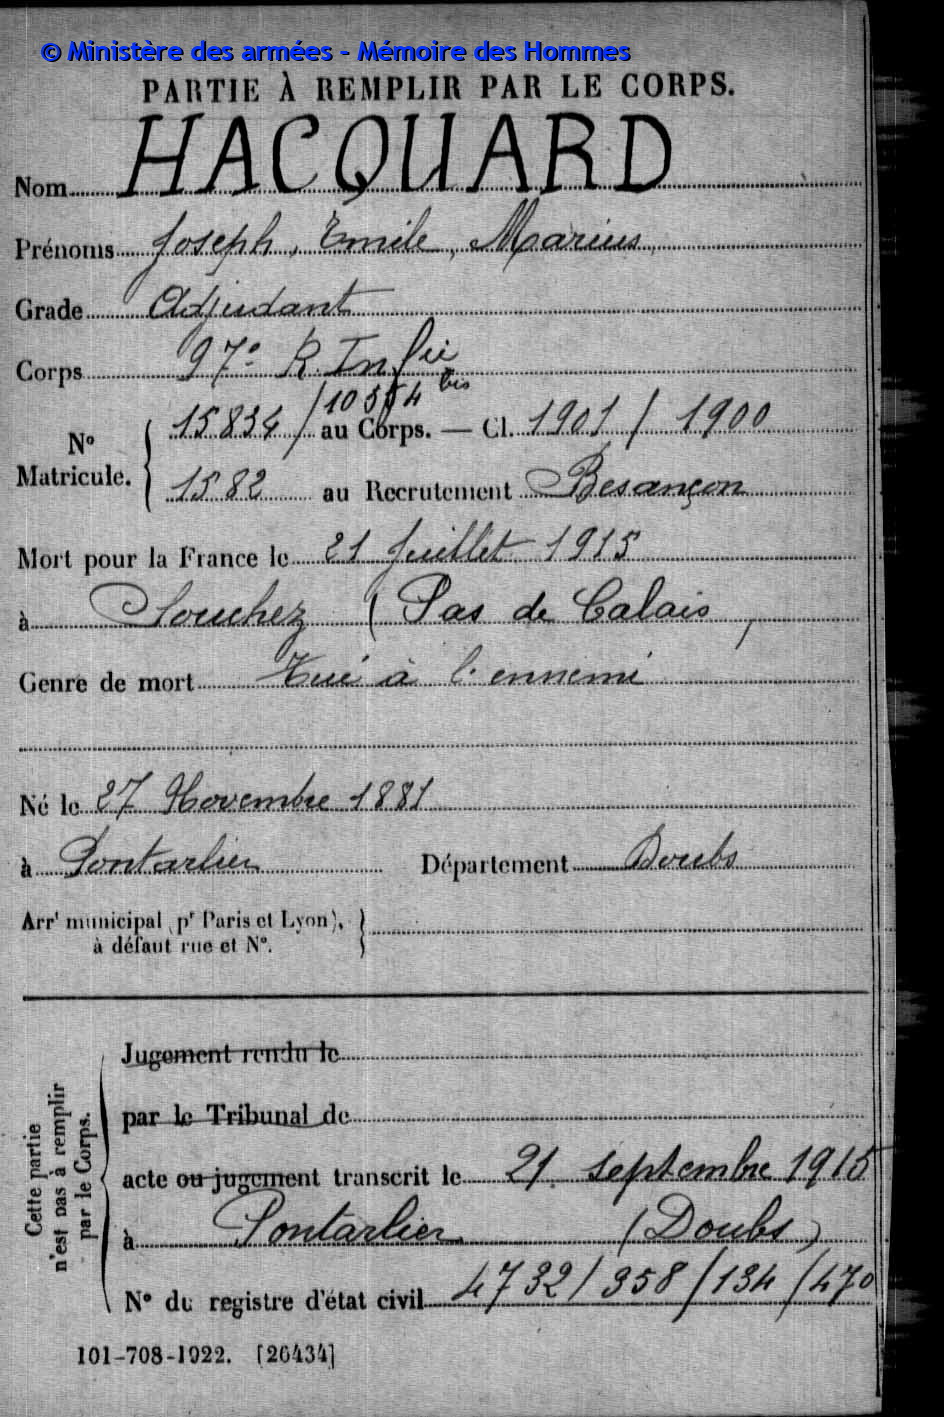 © Ministère des armées - Mémoire des Hommes
PARTIE À REMPLIR PAR LE CORPS.
Nom HACQUARD
Prénoms Joseph, Emile, Marius,
Grade Adjudant
Corps 97e R. Infie
N° Matricule. 15834 / 10554 bis au Corps. — Cl. 1901 / 1900
1582 au Recrutement Besançon
Mort pour la France le 21 Juillet 1915
à Souchez (Pas de Calais,
Genre de mort Tué à l'ennemi
Né le 27 Novembre 1881
à Pontarlier Département Doubs
Arrt municipal (pr Paris et Lyon),
à défaut rue et N°.
Cette partie n'est pas à remplir par le Corps.
Jugement rendu le
par le Tribunal de
acte ou jugement transcrit le 21 septembre 1915
à Pontarlier (Doubs)
N° du registre d'état civil 4732/358/134/470
101-708-1922. [26434]